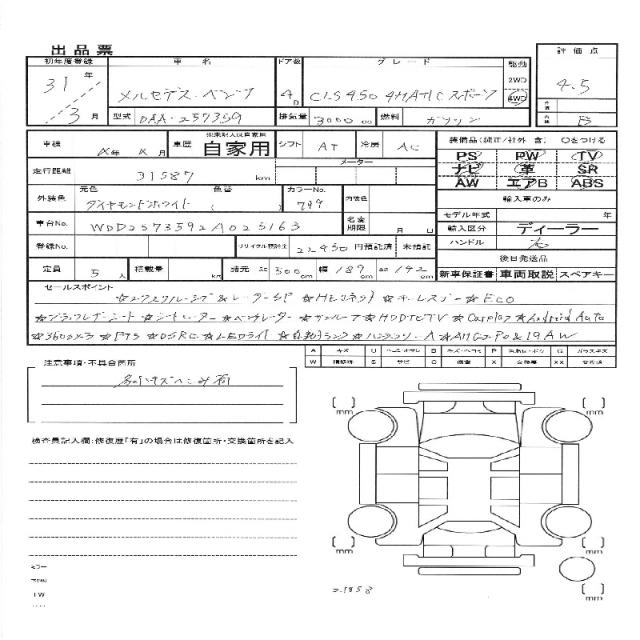 出品票
初年度登録 車名 ドア数 グレード 駆動 評価点
31年 3月 メルセデス・ベンツ 4D CLS450 4MATIC スポーツ 2WD 4WD 4.5
型式 DAA-257359 排気量 3000 cc 燃料 ガソリン B
車検 X年 X月 車歴 自家用 シフト AT 冷房 AC 装備品(純正/社外 含) ○をつける
走行距離 31587 km メーター PS PW TV
ナビ 革 SR
AW エアB ABS
外装色 元色 ダイヤモンドホワイト 色替 カラーNo. 799 内装色 輸入車のみ
モデル年式 年
車台No. WDD2573592A025163 名変期限 月 日 輸入区分 ディーラー
登録No. リサイクル預託金 22450 円預託済 未預託 ハンドル 右
後日発送品
定員 5人 積載量 kg 諸元 長 500 cm 幅 189 cm 高 142 cm 新車保証書 車両取説 スペアキー
セールスポイント
☆エクスクルーシブ&レーダーSP ☆Hミコネクト ☆キーレスゴー ☆Eco
☆ブラックレザーシート ☆シートヒーター ☆ベンチレーター ☆サンルーフ ☆HDDナビTV ☆Carplay ☆Android Auto
☆360°カメラ ☆PTS ☆DSRC ☆LEDライト ☆自動トランク ☆ハンズフリーA ☆AMGエアロ&19AW
A キズ U B P G ガラスキズ
W S サビ C X XX
注意事項・不具合箇所
検査員記入欄:修復歴「有」の場合は修復箇所・交換箇所を記入
mm mm
mm mm
mm